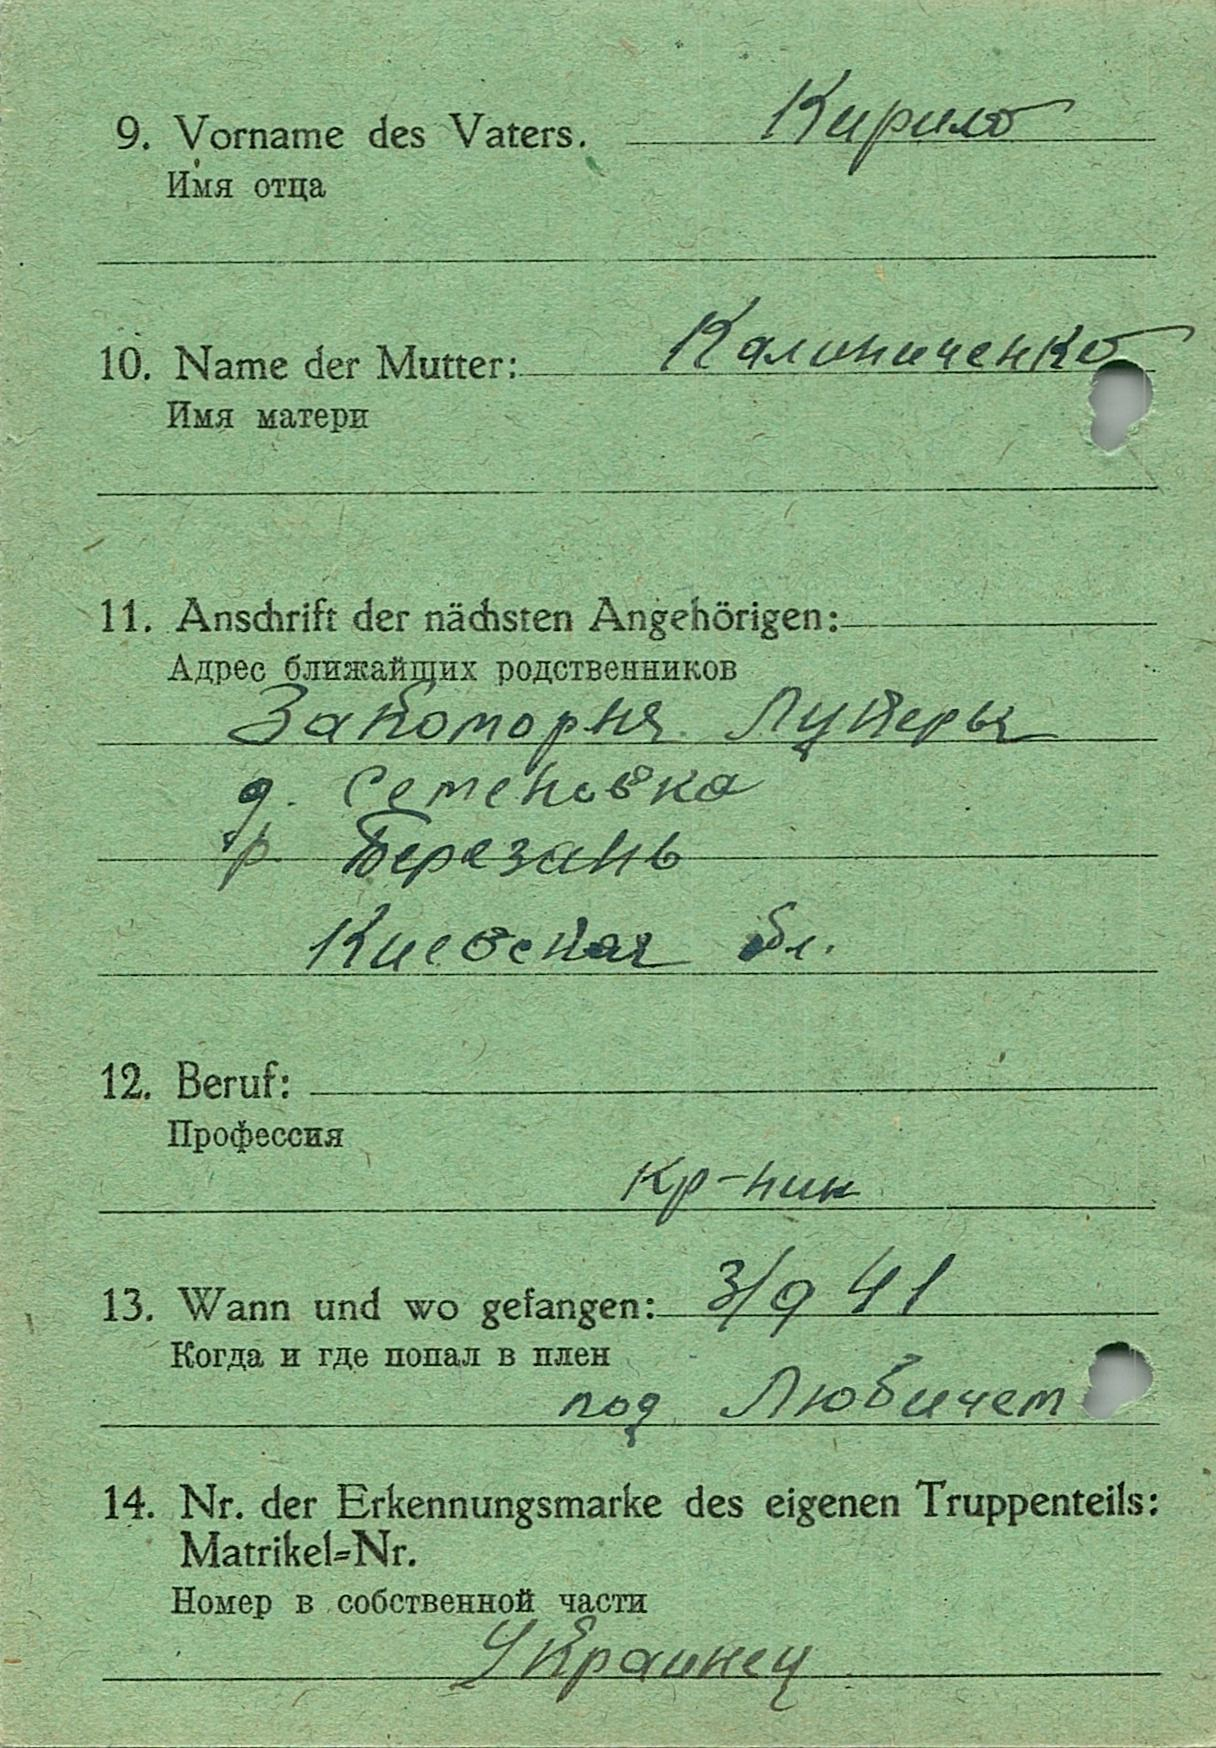 9. Vorname des Vaters. Кирило
Имя отца
10. Name der Mutter: Калиниченко
Имя матери
11. Anschrift der nächsten Angehörigen:
Адрес ближайщих родственников
Запоторня
д. Семеновка
р Березань
Киевская бл.
12. Beruf:
Профессия
кр-ник
13. Wann und wo gefangen: 3/9 41
Когда и где попал в плен
под Любичем
14. Nr. der Erkennungsmarke des eigenen Truppenteils:
Matrikel=Nr.
Номер в собственной части
Украинец